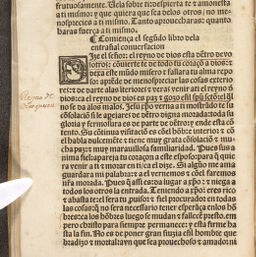 fructuosamente. Uela sobre ti: despierta te y amonesta
a ti mismo: y que quiera que sea delos otros: no me
nosprecies a ti mismo. Tanto aprouecharas: quanto
baras fuerca a ti mismo.
Comiença el segūdo libro dela
entrañal conuersacion
Dize el señor: el reyno de dios esta dētro de vo
sotros: conuierte te de todo tu coraçō a dios: z
dexa este mūdo misero z fallara tu alma repo
so: aprēde de menospreciar las cosas exterio
res: z de darte alas iteriores z veras venir a ti el reyno d
dios: ca el reyno de dios es paz y gozo
no se da alos malos. Jesu xp̄o verna a ti mostrādo te su
cōsolaciō si le aparejares de dētro digna morada: toda su
gloria y fermosura es de parte de dētro: y ende esta cō
tento. Su cōtinua visitaciō es cōel hōbre interior: z cō
el habla dulcemēte: z tiene muy grata cōsolaciō z mu
cha paz: z muy marauillosa familiaridad. Pues sus a
nima fiel apareja tu coraçō a este esposo: para q̄ quie
ra venir a ti z morar en ti: ca el dize. Si algūo me ama
guardara mi palabra: z a el vernemos z cōel faremos
nr̄a morada. Pues q̄ assi es: da lugar a xp̄o: z niega a
todos los otros la entrada. Teniendo a xp̄o: eres rico
z abasta te: el sera tu prouisor z fiel procurador en todas
las cosas: q̄ no sera necessario tener esperāça enlos hō
bres: ca los hōbres luego se mudan z fallecē presto. em
pero christo para siempre permanece: z esta firme ba
sta la fin. No es de poner gran fiuzia enl hombre que
bradizo z mortal: avn que sea prouechoso z amado: ni
Reyno de